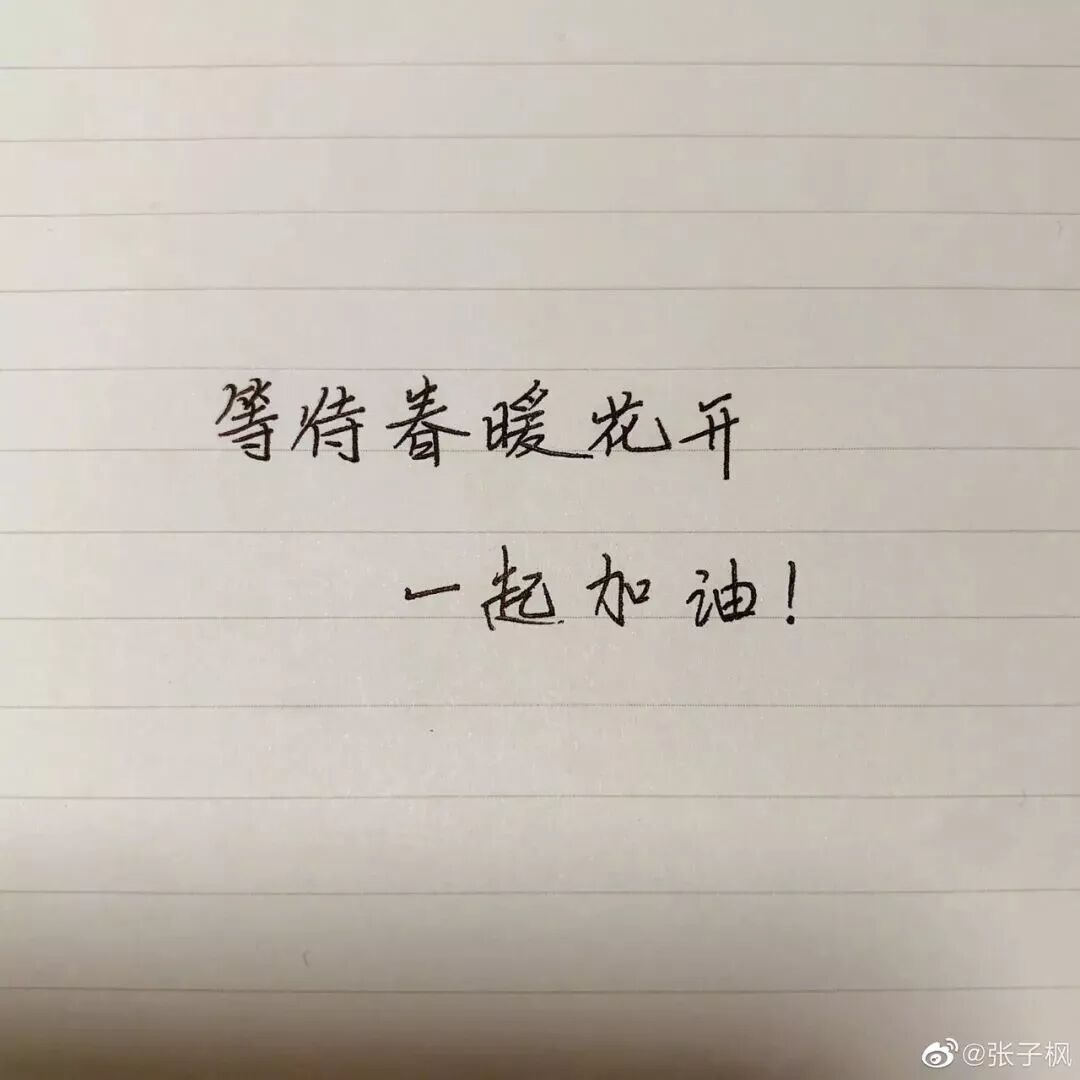 等待春暖花开
一起加油！
@张子枫